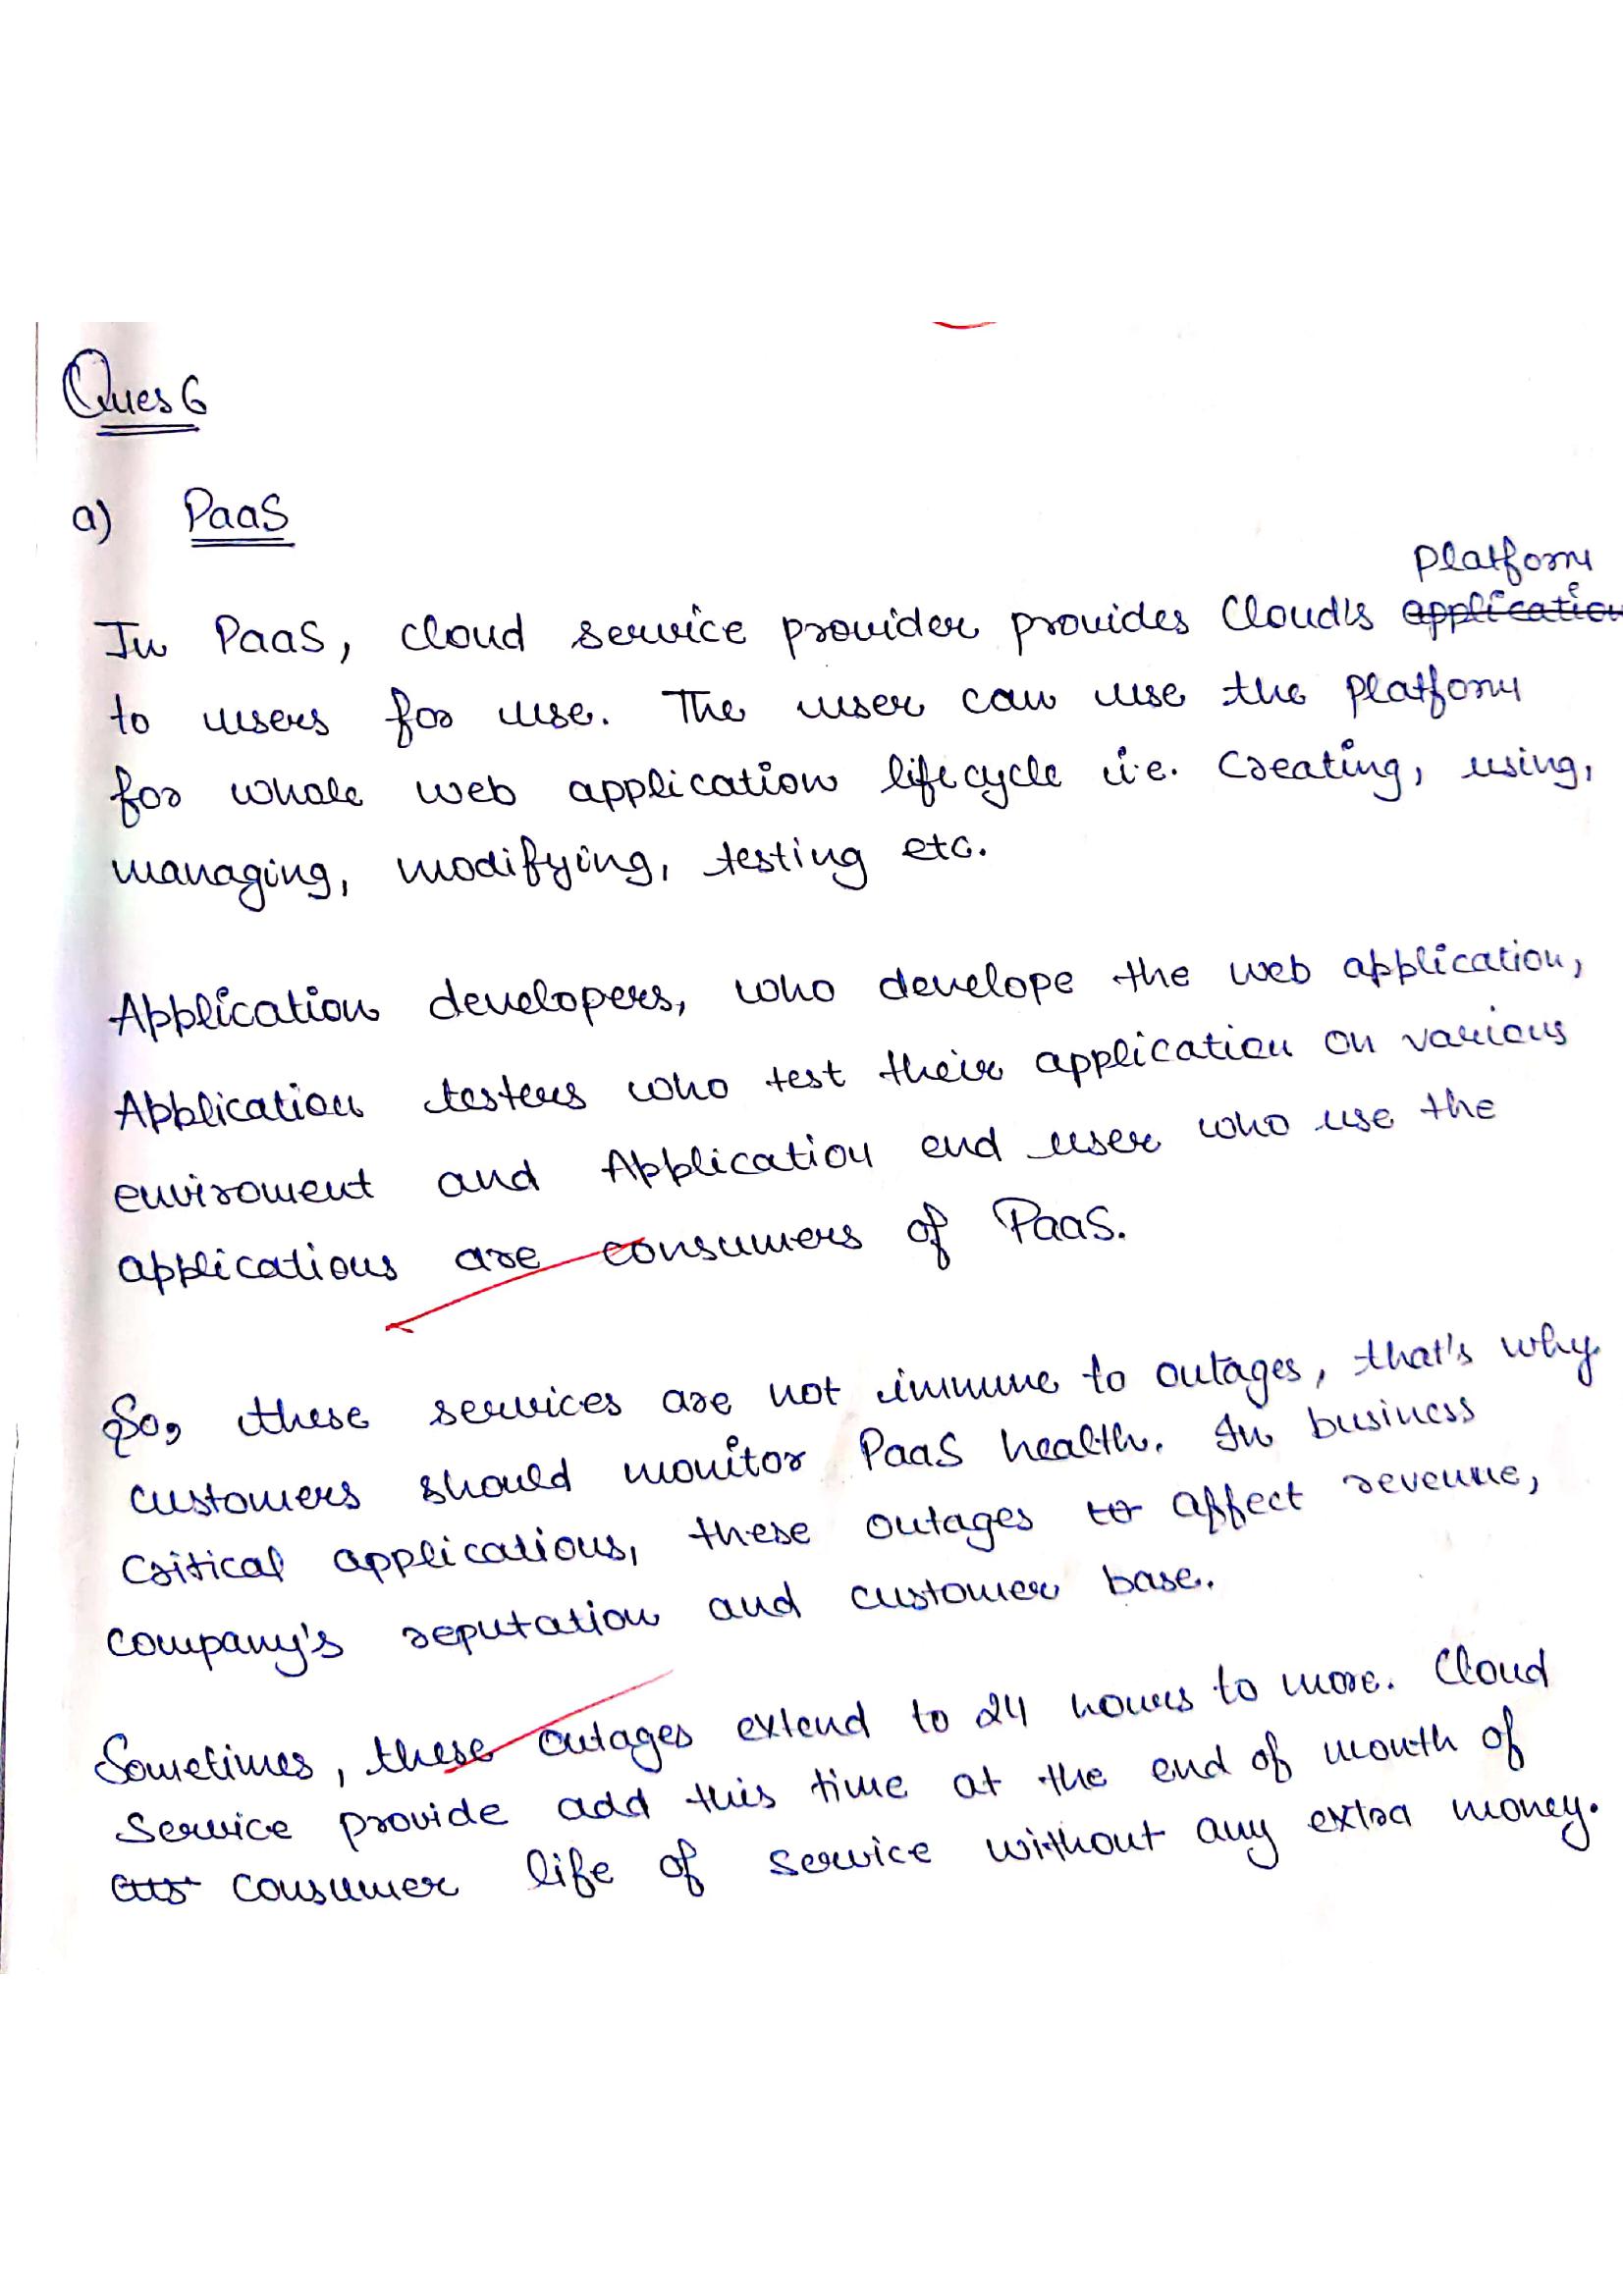 Ques 6
a) PaaS
platform
In PaaS, cloud service provider provides Cloud's application
to users for use. The user can use the platform
for whole web application lifecycle i.e. creating, using,
managing, modifying, testing etc.
Application developers, who develope the web application,
Application testers who test their application on various
enviroment and Application end user who use the
applications are consumers of PaaS.
So, these services are not immune to outages, that's why
customers should monitor PaaS health. In business
critical applications, these outages to affect revenue,
company's reputation and customer base.
Sometimes, these outages extend to 24 hours to more. Cloud
Service provide add this time at the end of month of
consumer life of service without any extra money.